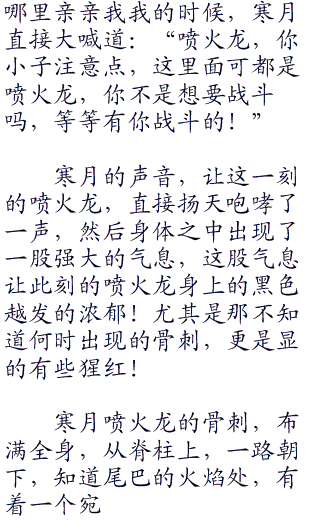 哪里亲亲我我的时候，寒月
直接大喊道：“喷火龙，你
小子注意点，这里面可都是
喷火龙，你不是想要战斗
吗，等等有你战斗的！”
寒月的声音，让这一刻
的喷火龙，直接扬天咆哮了
一声，然后身体之中出现了
一股强大的气息，这股气息
让此刻的喷火龙身上的黑色
越发的浓郁！尤其是那不知
道何时出现的骨刺，更是显
的有些猩红！
寒月喷火龙的骨刺，布
满全身，从脊柱上，一路朝
下，知道尾巴的火焰处，有
着一个宛